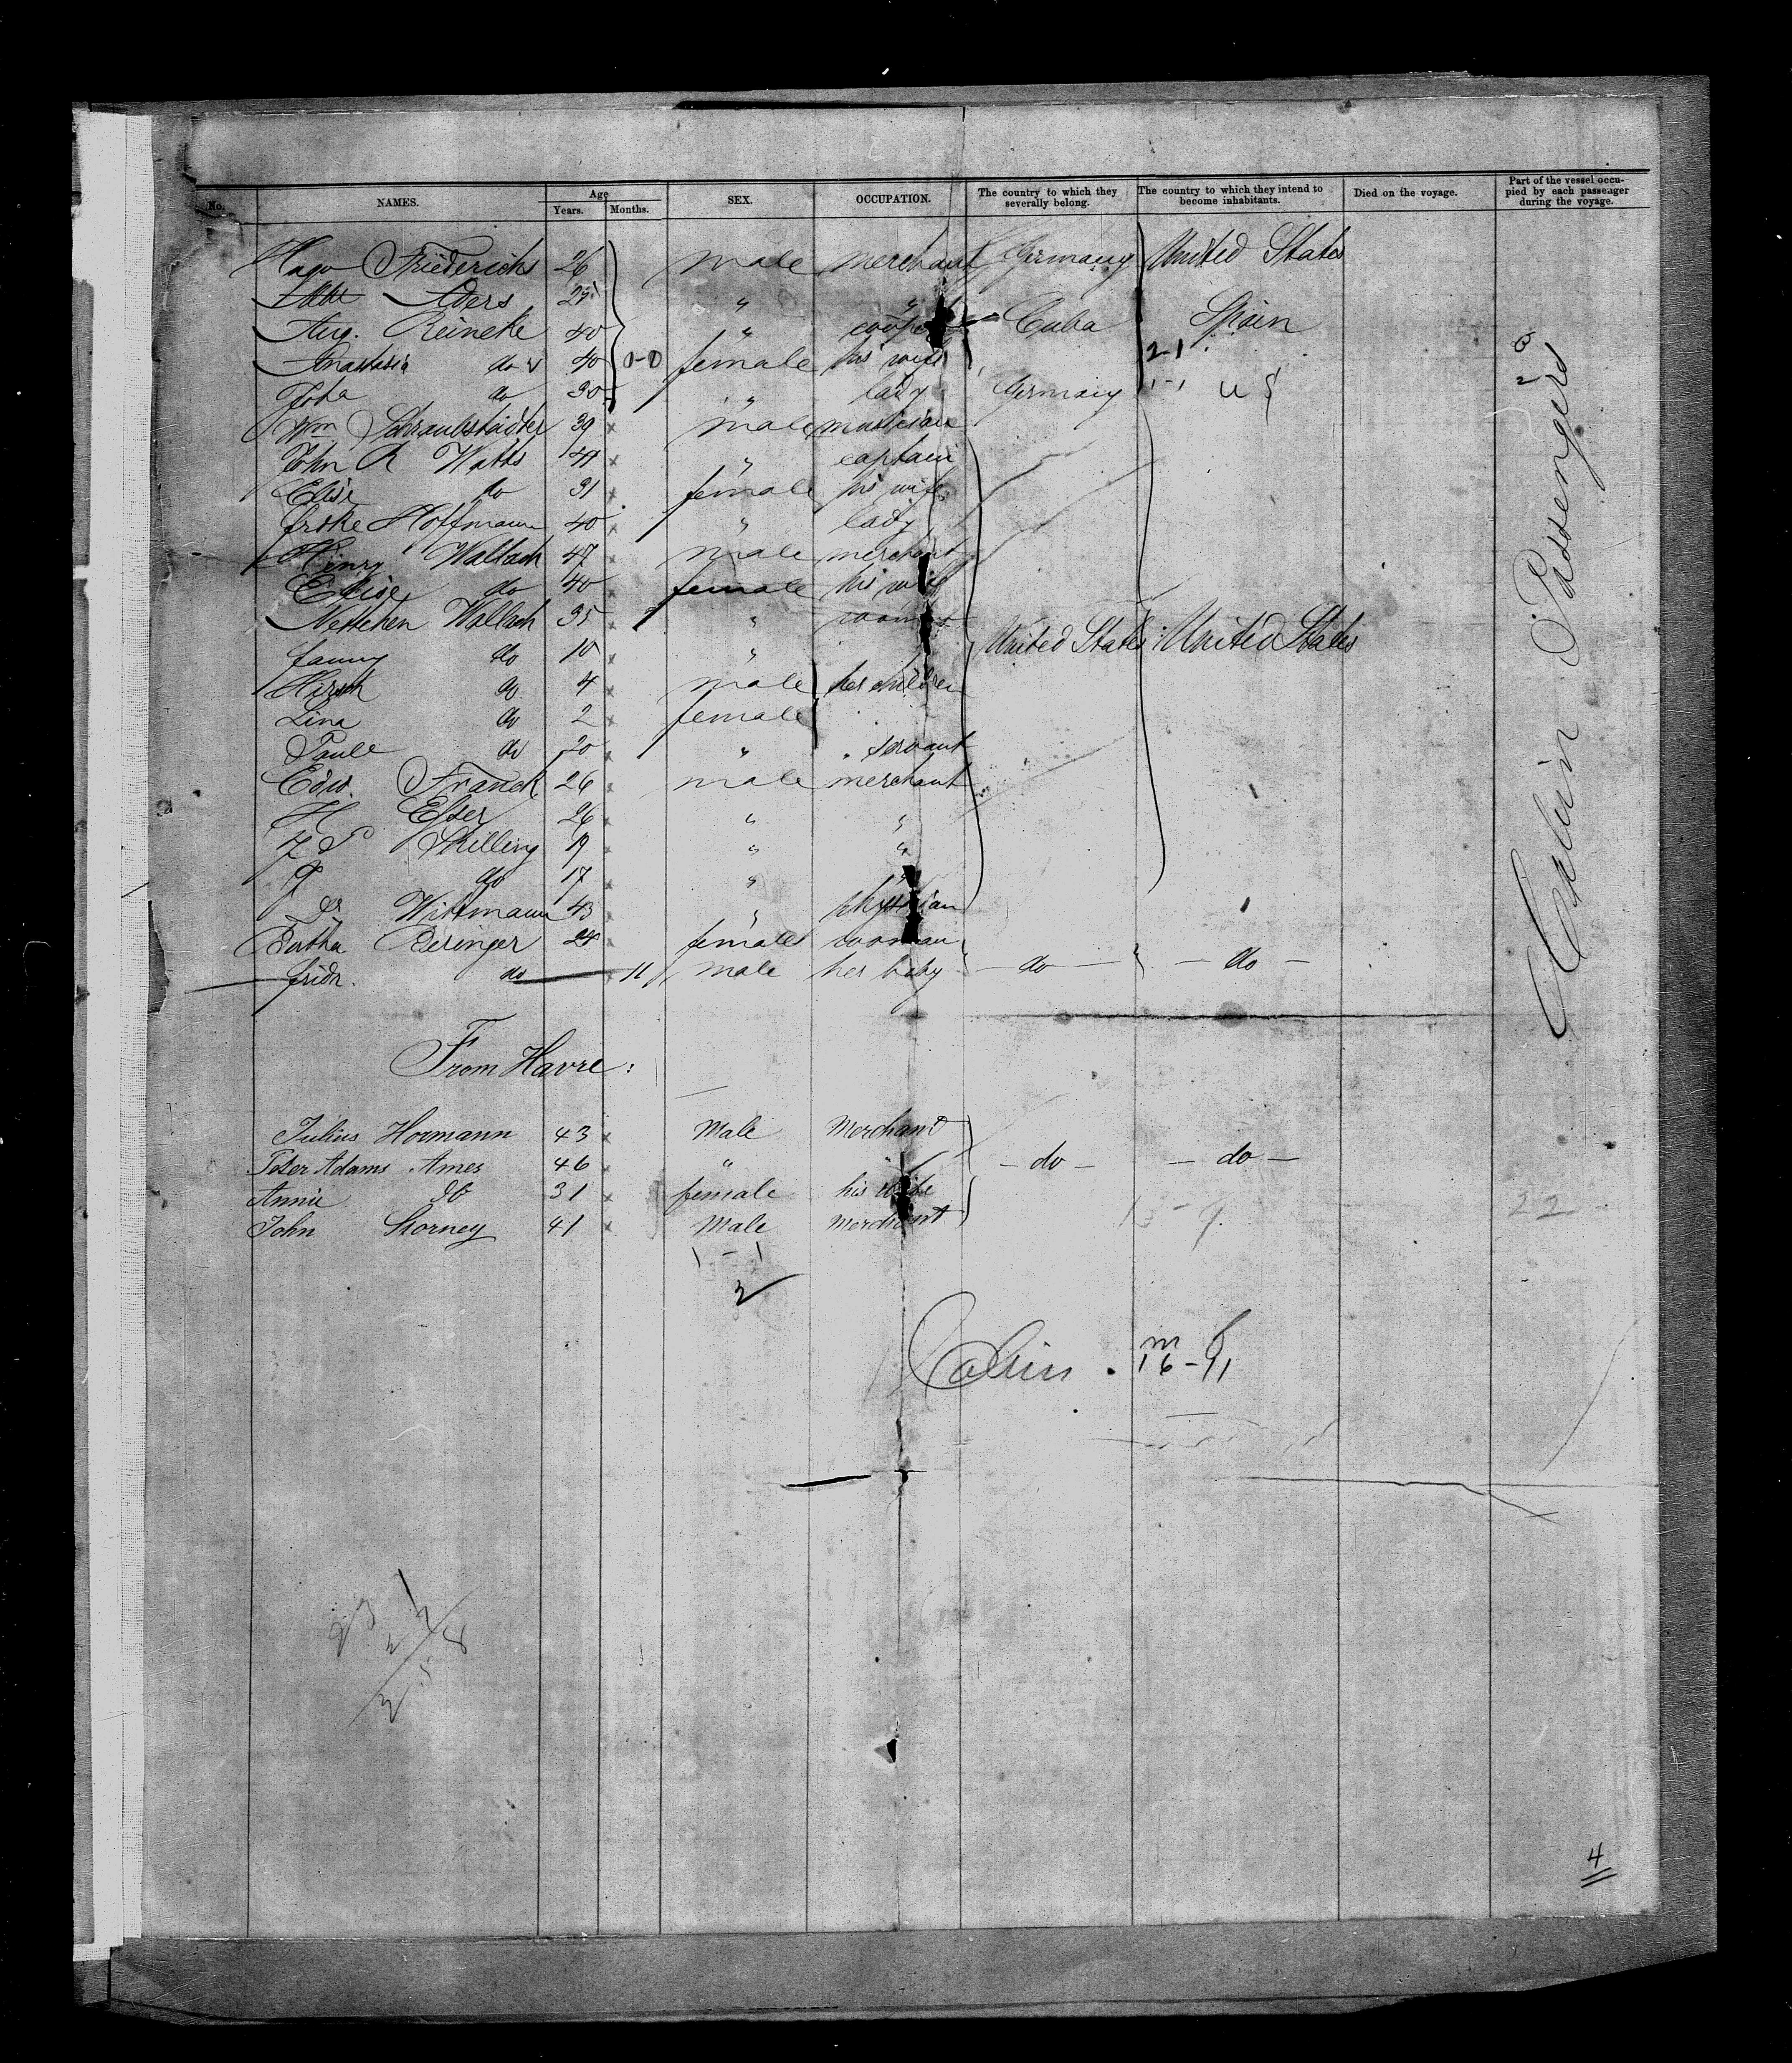 No. NAMES. Age Years. Months. SEX. OCCUPATION. The country to which they severally belong. The country to which they intend to become inhabitants. Died on the voyage. Part of the vessel occupied by each passenger during the voyage.
Hugo Friederichs 26 male merchant Germany United States
Aders " "
Aug. Reineke 40 " cooper Cuba Spain
Anastasia do 40 0-0 female his wife 2-1
Joha do 30 " lady Germany 1-1 US
Wm Schraubstädter 39 male musician
John R Watts 44 " captain
Elise do 31 female his wife
Hoffmann 40 " lady
Henry Wallach 47 male merchant
Elise do 40 female his wife
Nettchen Wallach 35 " woman United States United States
fanny do 10 "
Hirsch do 4 male her children
Lina do 2 female
Paule do 20 " servant
Edw. Franck 26 male merchant
H Elser 26 " "
Skilling 19 " "
do 17 " "
Dr Wittmann 43 " physician
Bertha Beringer 24 female woman
fridr. do 11 male her baby - do - - do -
From Havre:
Julius Hormann 43 Male Merchant
Peter Adams Ames 46 " - do - - do -
Annie do 31 female his wife
John Storney 41 Male Merchant
15-9. 22
1-1
2
Cabin. m f
16-11
Cabin Passengers
23
4